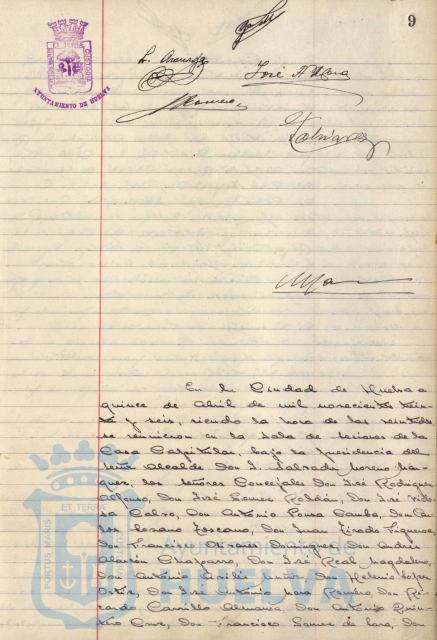 9
PORTUS MARIS ET TERRAE CUSTODIA
AYUNTAMIENTO DE HUELVA
José A. Mora
Romero
En la Ciudad de Huelva a
quince de Abril de mil novecientos trein-
ta y seis, siendo la hora de las veintidos,
se reunieron en la Sala de sesiones de la
Casa Capitular, bajo la Presidencia del
Señor Alcalde Don S. Salvador Moreno Már-
quez, los señores Concejales Don José Rodriguez
Alfonso, Don José Gomez Roldán, Don José
Calvo, Don Antonio Ponce Don Car-
los Lozano Toscano, Don Juan Tirado Figueroa,
Don Francisco Don Andrés
Alarcón Chaparro, Don José Real Magdaleno,
Don Antonio Don Helenio López
Ortiz, Don José Antonio Mora Romero, Don Ri-
cardo Carrillo Almansa, Don Antonio Quin-
tero Cruz, Don Francisco Gomez de Lara, Don
PORTUS MARIS ET TERRAE
Ayuntamiento de
HUELVA